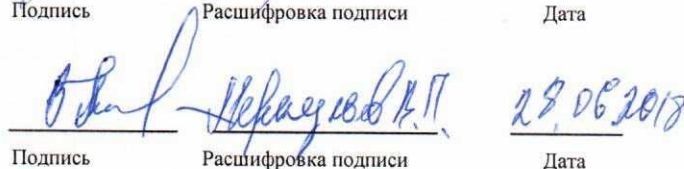 Подпись Расшифровка подписи Дата
В.П. 28.06.2018
Подпись Расшифровка подписи Дата